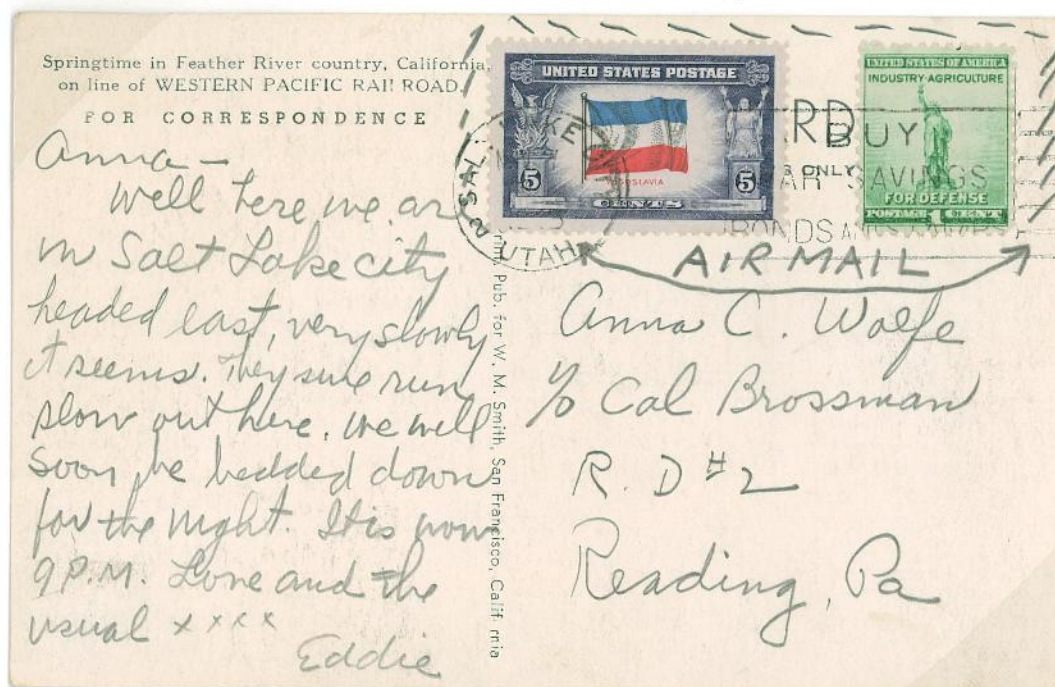 Springtime in Feather River country, California,
on line of WESTERN PACIFIC RAILROAD.
FOR CORRESPONDENCE
Anna —
Well here we are
in Salt Lake city
headed east, very slowly
it seems. They sure run
slow out here. We will
soon be bedded down
for the night. It is now
9 P.M. Love and the
usual x x x x
Eddie
Pub. for W. M. Smith, San Francisco, California
UNITED STATES POSTAGE
YUGOSLAVIA
5 5
CENTS
SALT LAKE
UTAH
UNITED STATES OF AMERICA
INDUSTRY·AGRICULTURE
FOR DEFENSE
POSTAGE 1 CENT
BUY
WAR SAVINGS
BONDS AND STAMPS
ONLY
AIR MAIL
Anna C. Wolfe
c/o Cal Brossman
R. D #2
Reading, Pa